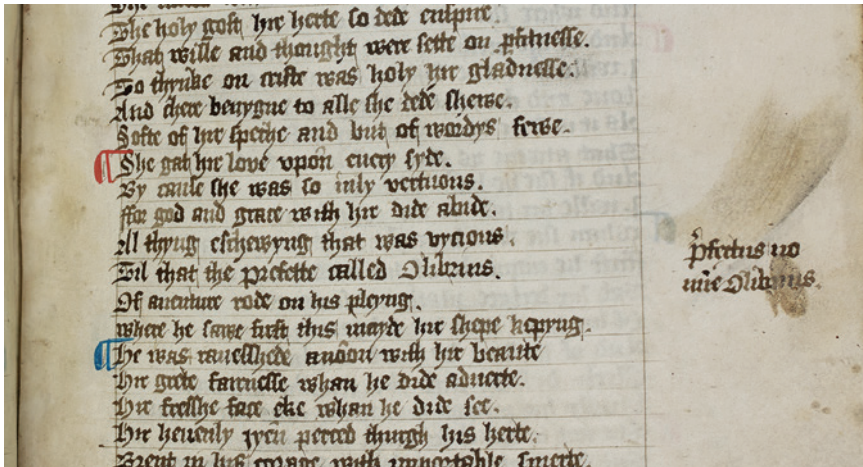 The holy gost hir herte so dede enspire
That wille and thought were sette on pfitnesse.
To thynke on criste was holy hir gladnesse.
And chere benygne to alle she dede shewe.
Softe of hir speche and but of wordys fewe.
She gat hir love vpon euery syde.
By cause she was so inly vertuous.
ffor god and grace with hir dide abide.
Al thyng eschewyng that was vycious.
Til that the prefette called Olibrius.
Of auenture rode on his pleyng.
where he sawe first this mayde hir shepe kepyng.
He was raueshede anoon with hir beaute
Hir grete fairnesse whan he dide aduerte.
Hir fresshe face eke whan he dide see.
Hir heuenly iyen perced thurgh his herte.
Brent in his corage with importable smerte.
pfectus no
mie Olibrius.